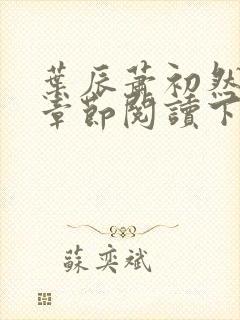 葉辰蕭初然
章節閱讀下
蘇奕斌